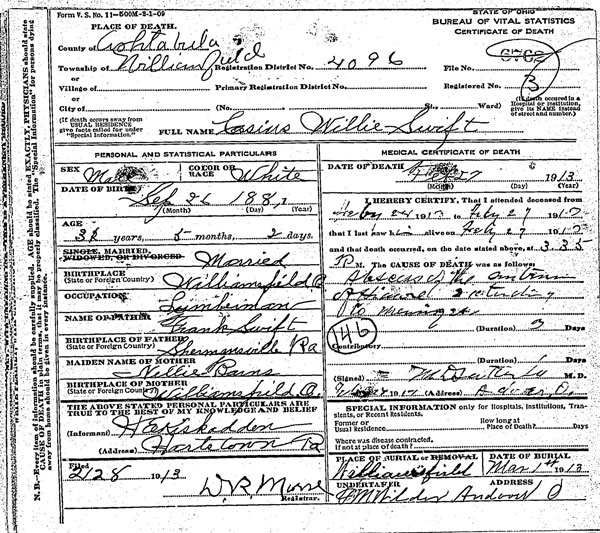 Form V. S. No. 11-500M-3-1-09
PLACE OF DEATH.
County of Ashtabula
Township of Williamsfield Registration District No. 4096
or
Village of Primary Registration District No.
or
City of (No. St. Ward)
(If death occurs away from USUAL RESIDENCE give facts called for under "Special Information.")
FULL NAME Casius Willie Swift
STATE OF OHIO
BUREAU OF VITAL STATISTICS
CERTIFICATE OF DEATH
File No.
Registered No. 3
(If death occured in a Hospital or institution, give its NAME instead of street and number.)
N. B.—Every item of information should be carefully supplied. AGE should be stated EXACTLY. PHYSICIANS should state CAUSE OF DEATH in plain terms, that it may be properly classified. The "Special Information" for persons dying away from home should be given in every instance.
PERSONAL AND STATISTICAL PARTICULARS
SEX COLOR OR RACE White
DATE OF BIRTH Sep 26 1881
(Month) (Day) (Year)
AGE
years, 5 months, 2 days.
SINGLE, MARRIED, WIDOWED, OR DIVORCED Married
BIRTHPLACE
(State or Foreign Country) Williamsfield O
OCCUPATION Lumberman
NAME OF FATHER Frank Swift
BIRTHPLACE OF FATHER
(State or Foreign Country) Shermansville Pa
MAIDEN NAME OF MOTHER Nillie
BIRTHPLACE OF MOTHER
(State or Foreign Country) Williamsfield O.
THE ABOVE STATED PERSONAL PARTICULARS ARE TRUE TO THE BEST OF MY KNOWLEDGE AND BELIEF
(Informant)
(Address) Hartstown Pa
Filed 2/28 1913
W.R. Morse
Registrar.
MEDICAL CERTIFICATE OF DEATH
DATE OF DEATH 27 1913
(Month) (Day) (Year)
I HEREBY CERTIFY, That I attended deceased
from Feby 24 1913 to Feby 27 1913
that I last saw him alive on Feby 27 1913
and that death occurred, on the date stated above, at 3.35
P M. The CAUSE OF DEATH was as follows:
Abscess of the antrum
extending
to
(Duration) Days
Contributory 146
(Duration) Days
(Signed) M. D.
(Address) Andover, O.
SPECIAL INFORMATION only for Hospitals, Institutions, Transients, or Recent Residents.
Former or Usual Residence How long at Place of Death? Days
Where was disease contracted, If not at place of death?
PLACE OF BURIAL or REMOVAL Williamsfield
DATE OF BURIAL Mar 1st 1913
UNDERTAKER Wilder
ADDRESS Andover O